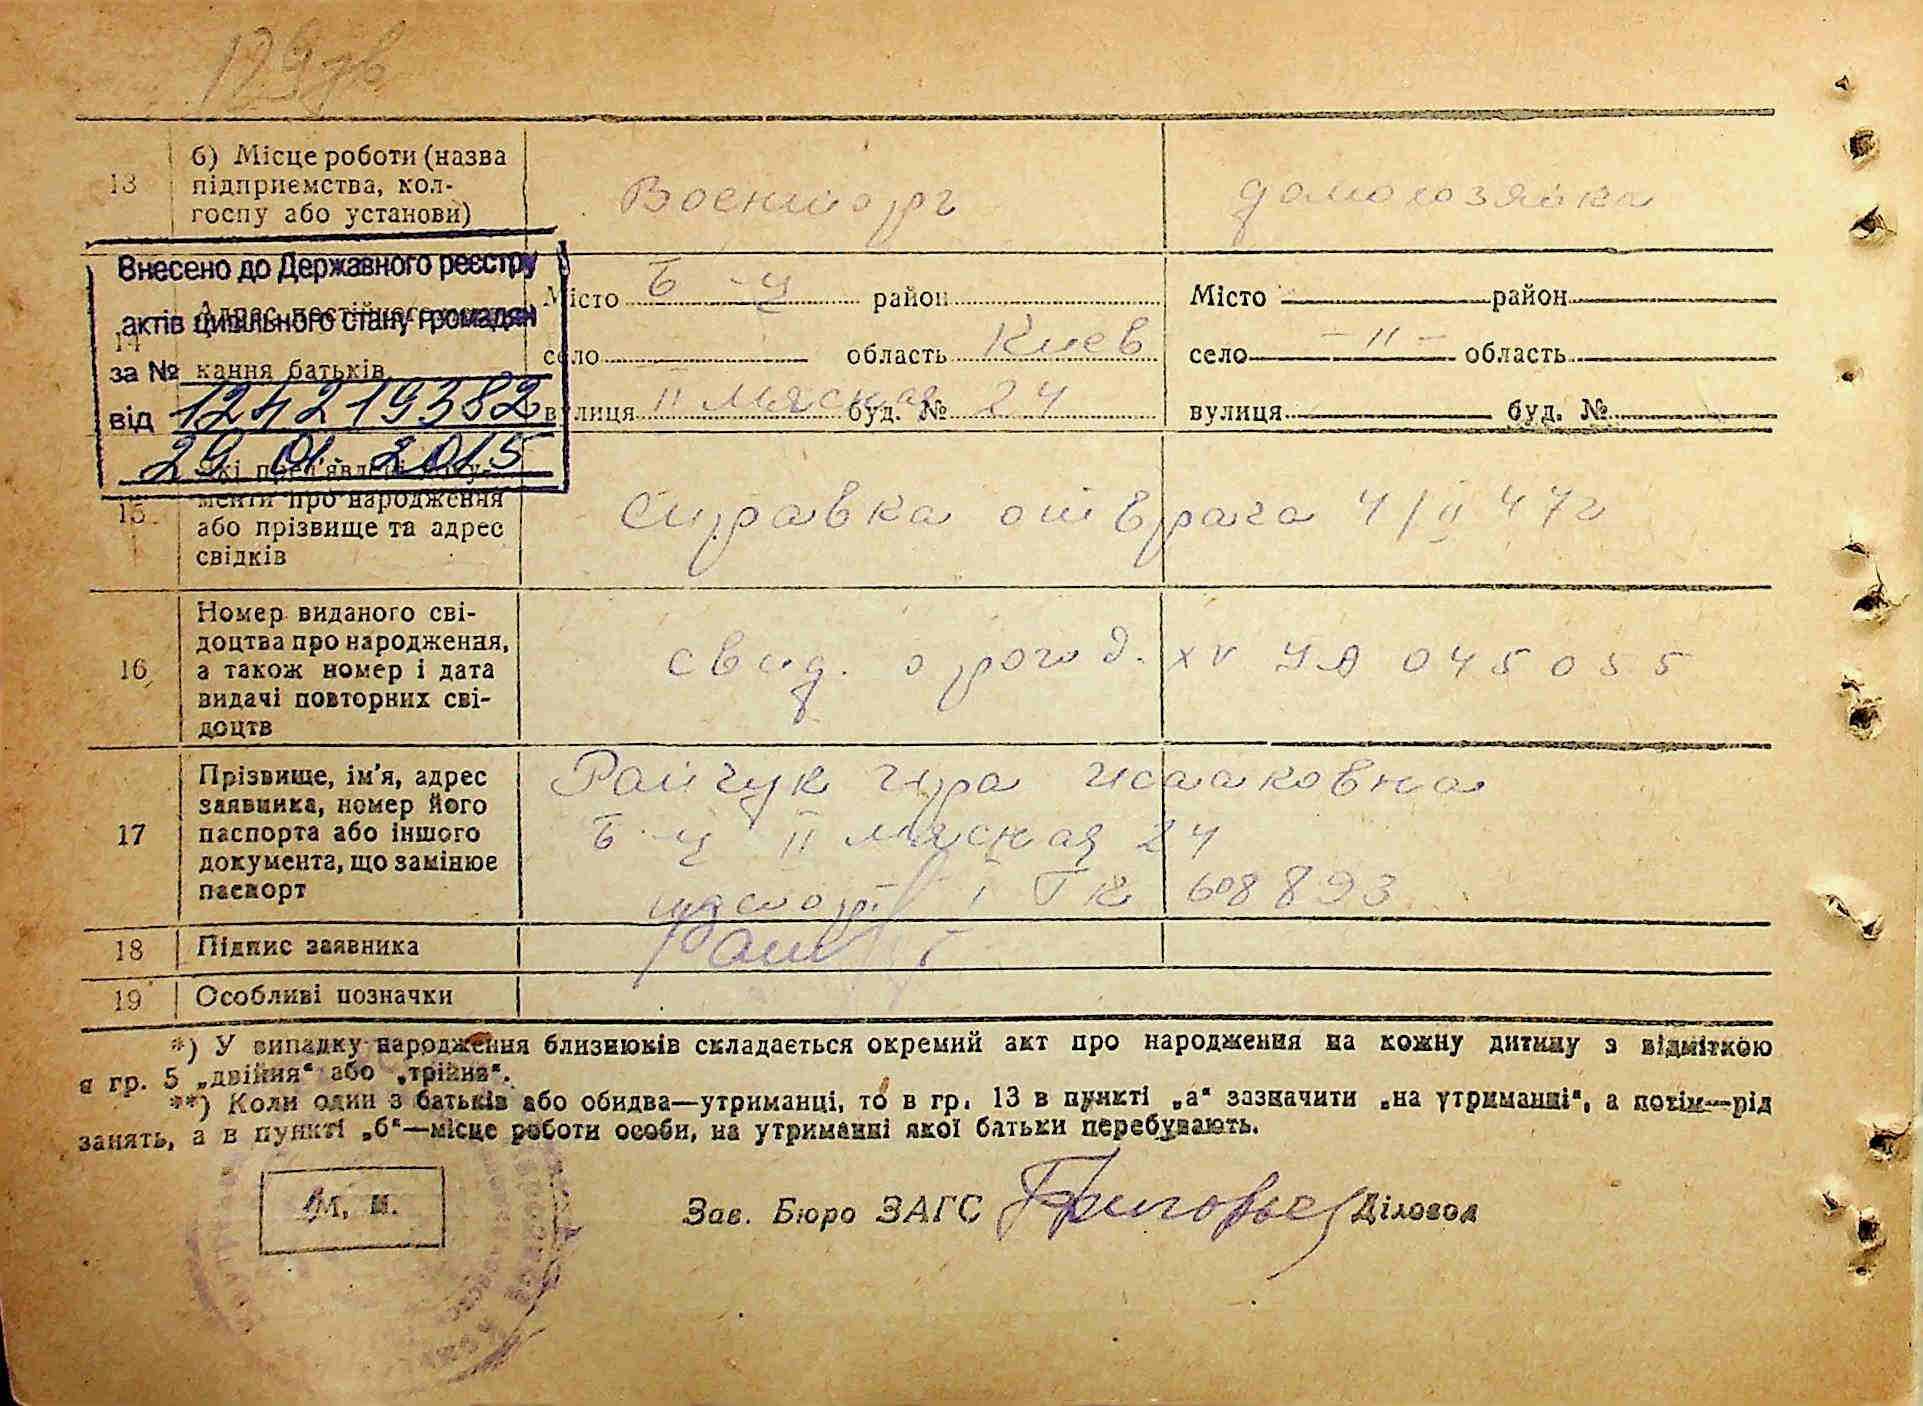 13
б) Місце роботи (назва
підприємства, кол-
госпу або установи)
Военторг
домохозяйка
Внесено до Державного реєстру
актів цивільного стану громадян
за № 124219382
від 29 01 2015
14
кання батьків
Місто Б-ц район
село область Киев
вулиця II Мясная буд. № 24
Місто район
село -〃- область
вулиця буд. №
15
Які пред'явлені доку-
менти про народження
або прізвище та адрес
свідків
Справка от врача 4/II 47г
16
Номер виданого сві-
доцтва про народження,
а також номер і дата
видачі повторних сві-
доцтв
свид. о рожд. XV УА 045055
17
Прізвище, ім'я, адрес
заявника, номер його
паспорта або іншого
документа, що замінює
паспорт
Райчук Исааковна
Б-ц II Мясная 24
паспорт I ТК 608893
18
Підпис заявника
19
Особливі позначки
*) У випадку народження близнюків складається окремий акт про народження на кожну дитину з відміткою
в гр. 5 „двійня“ або „трійня“.
**) Коли один з батьків або обидва—утриманці, то в гр. 13 в пункті „а“ зазначити „на утриманні“, а потім—рід
занять, а в пункті „б“—місце роботи особи, на утриманні якої батьки перебувають.
М. п.
Зав. Бюро ЗАГС Григорьев Діловод